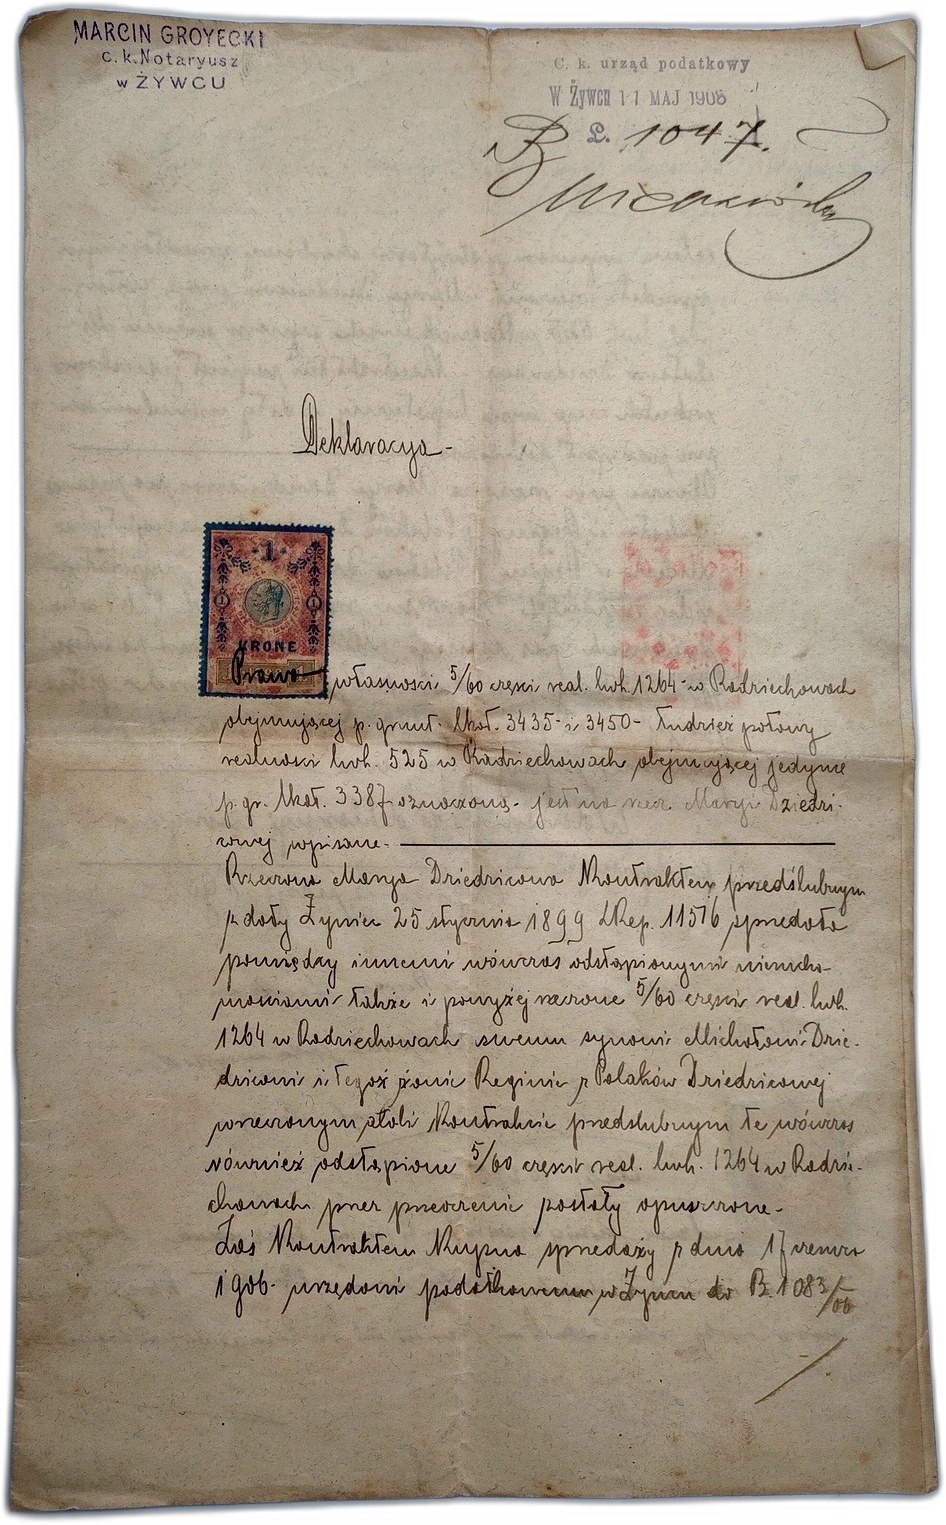 MARCIN GROYECKI
c. k. Notaryusz
w ŻYWCU
C. k. urząd podatkowy
W Żywcu 11 MAJ 1908
L. 1047.
Deklaracya-
1
1 1
KRONE
Prawo własności 5/60 części real. lwh. 1264 w Radziechowach
obejmującej p. grunt. lkat. 3435 i 3450- tudzież połowy
realności lwh. 525 w Radziechowach obejmującej jedynie
p. gr. lkat. 3387 oznaczoną- jest na rzecz Maryi Dziedzi-
cowej wpisane.-
Rzeczona Marya Dziedzicowa Kontraktem przedślubnym
z daty Żywiec 25 stycznia 1899 LRep. 11576 sprzedała
pomiędzy innemi wówczas odstąpionymi nierucho-
mościami także i powyżej rzeczone 5/60 części real. lwh.
1264 w Radziechowach swemu synowi Michałowi Dzie-
dzicowi i tegoż żonie Reginie z Polaków Dziedzicowej
w rzeczonym atoli Kontrakcie przedślubnym te wówczas
również odstąpione 5/60 części real. lwh. 1264 w Radzie-
chowach przez przeoczenie zostały opuszczone-
Zaś Kontraktem Kupna sprzedaży z dnia 17 czerwca
1906- urzędowi podatkowemu w Żywcu do B. 1083/06